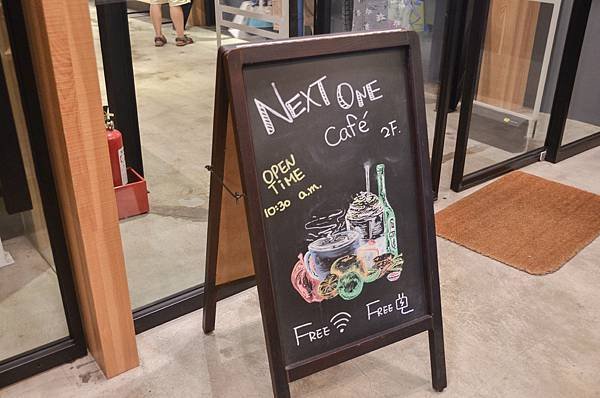 NEXT ONE
Café 2F.
OPEN
TIME
10:30 a.m.
FREE
FREE